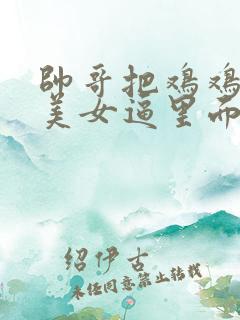 帥哥把鸡鸡
美女逼里而
绍伊古
未经同意禁止转载